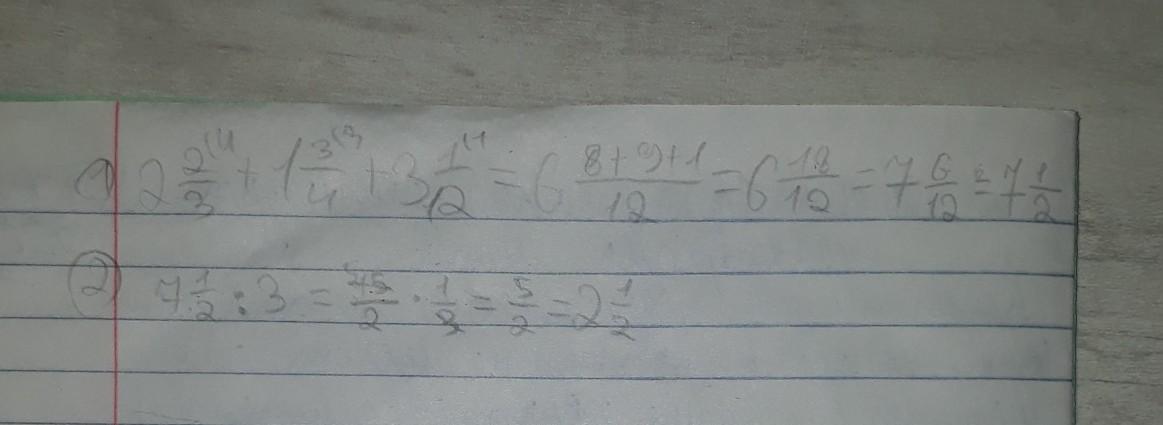 1) 2 2/3 (4 + 1 3/4 (3 + 3 1/12 (1 = 6 8+9+1/12 = 6 18/12 = 7 6/12 = 7 1/2
2) 7 1/2 : 3 = 15/2 · 1/3 = 5/2 = 2 1/2